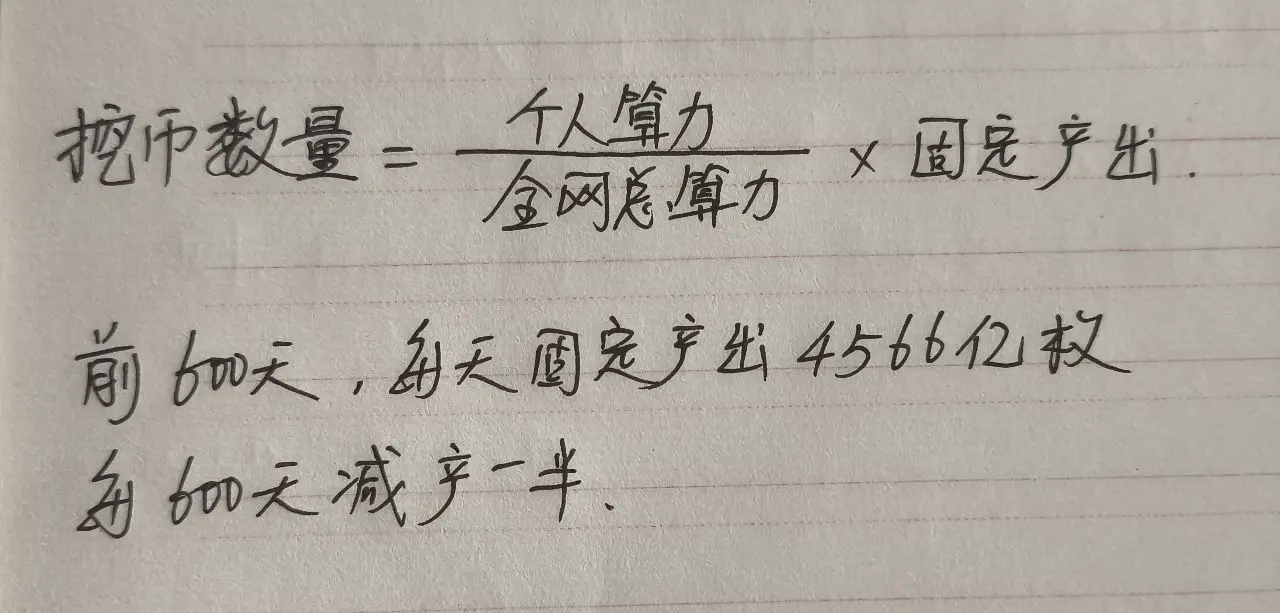 挖币数量 = 个人算力 / 全网总算力 × 固定产出.
前600天,每天固定产出4566亿枚
每600天减产一半.